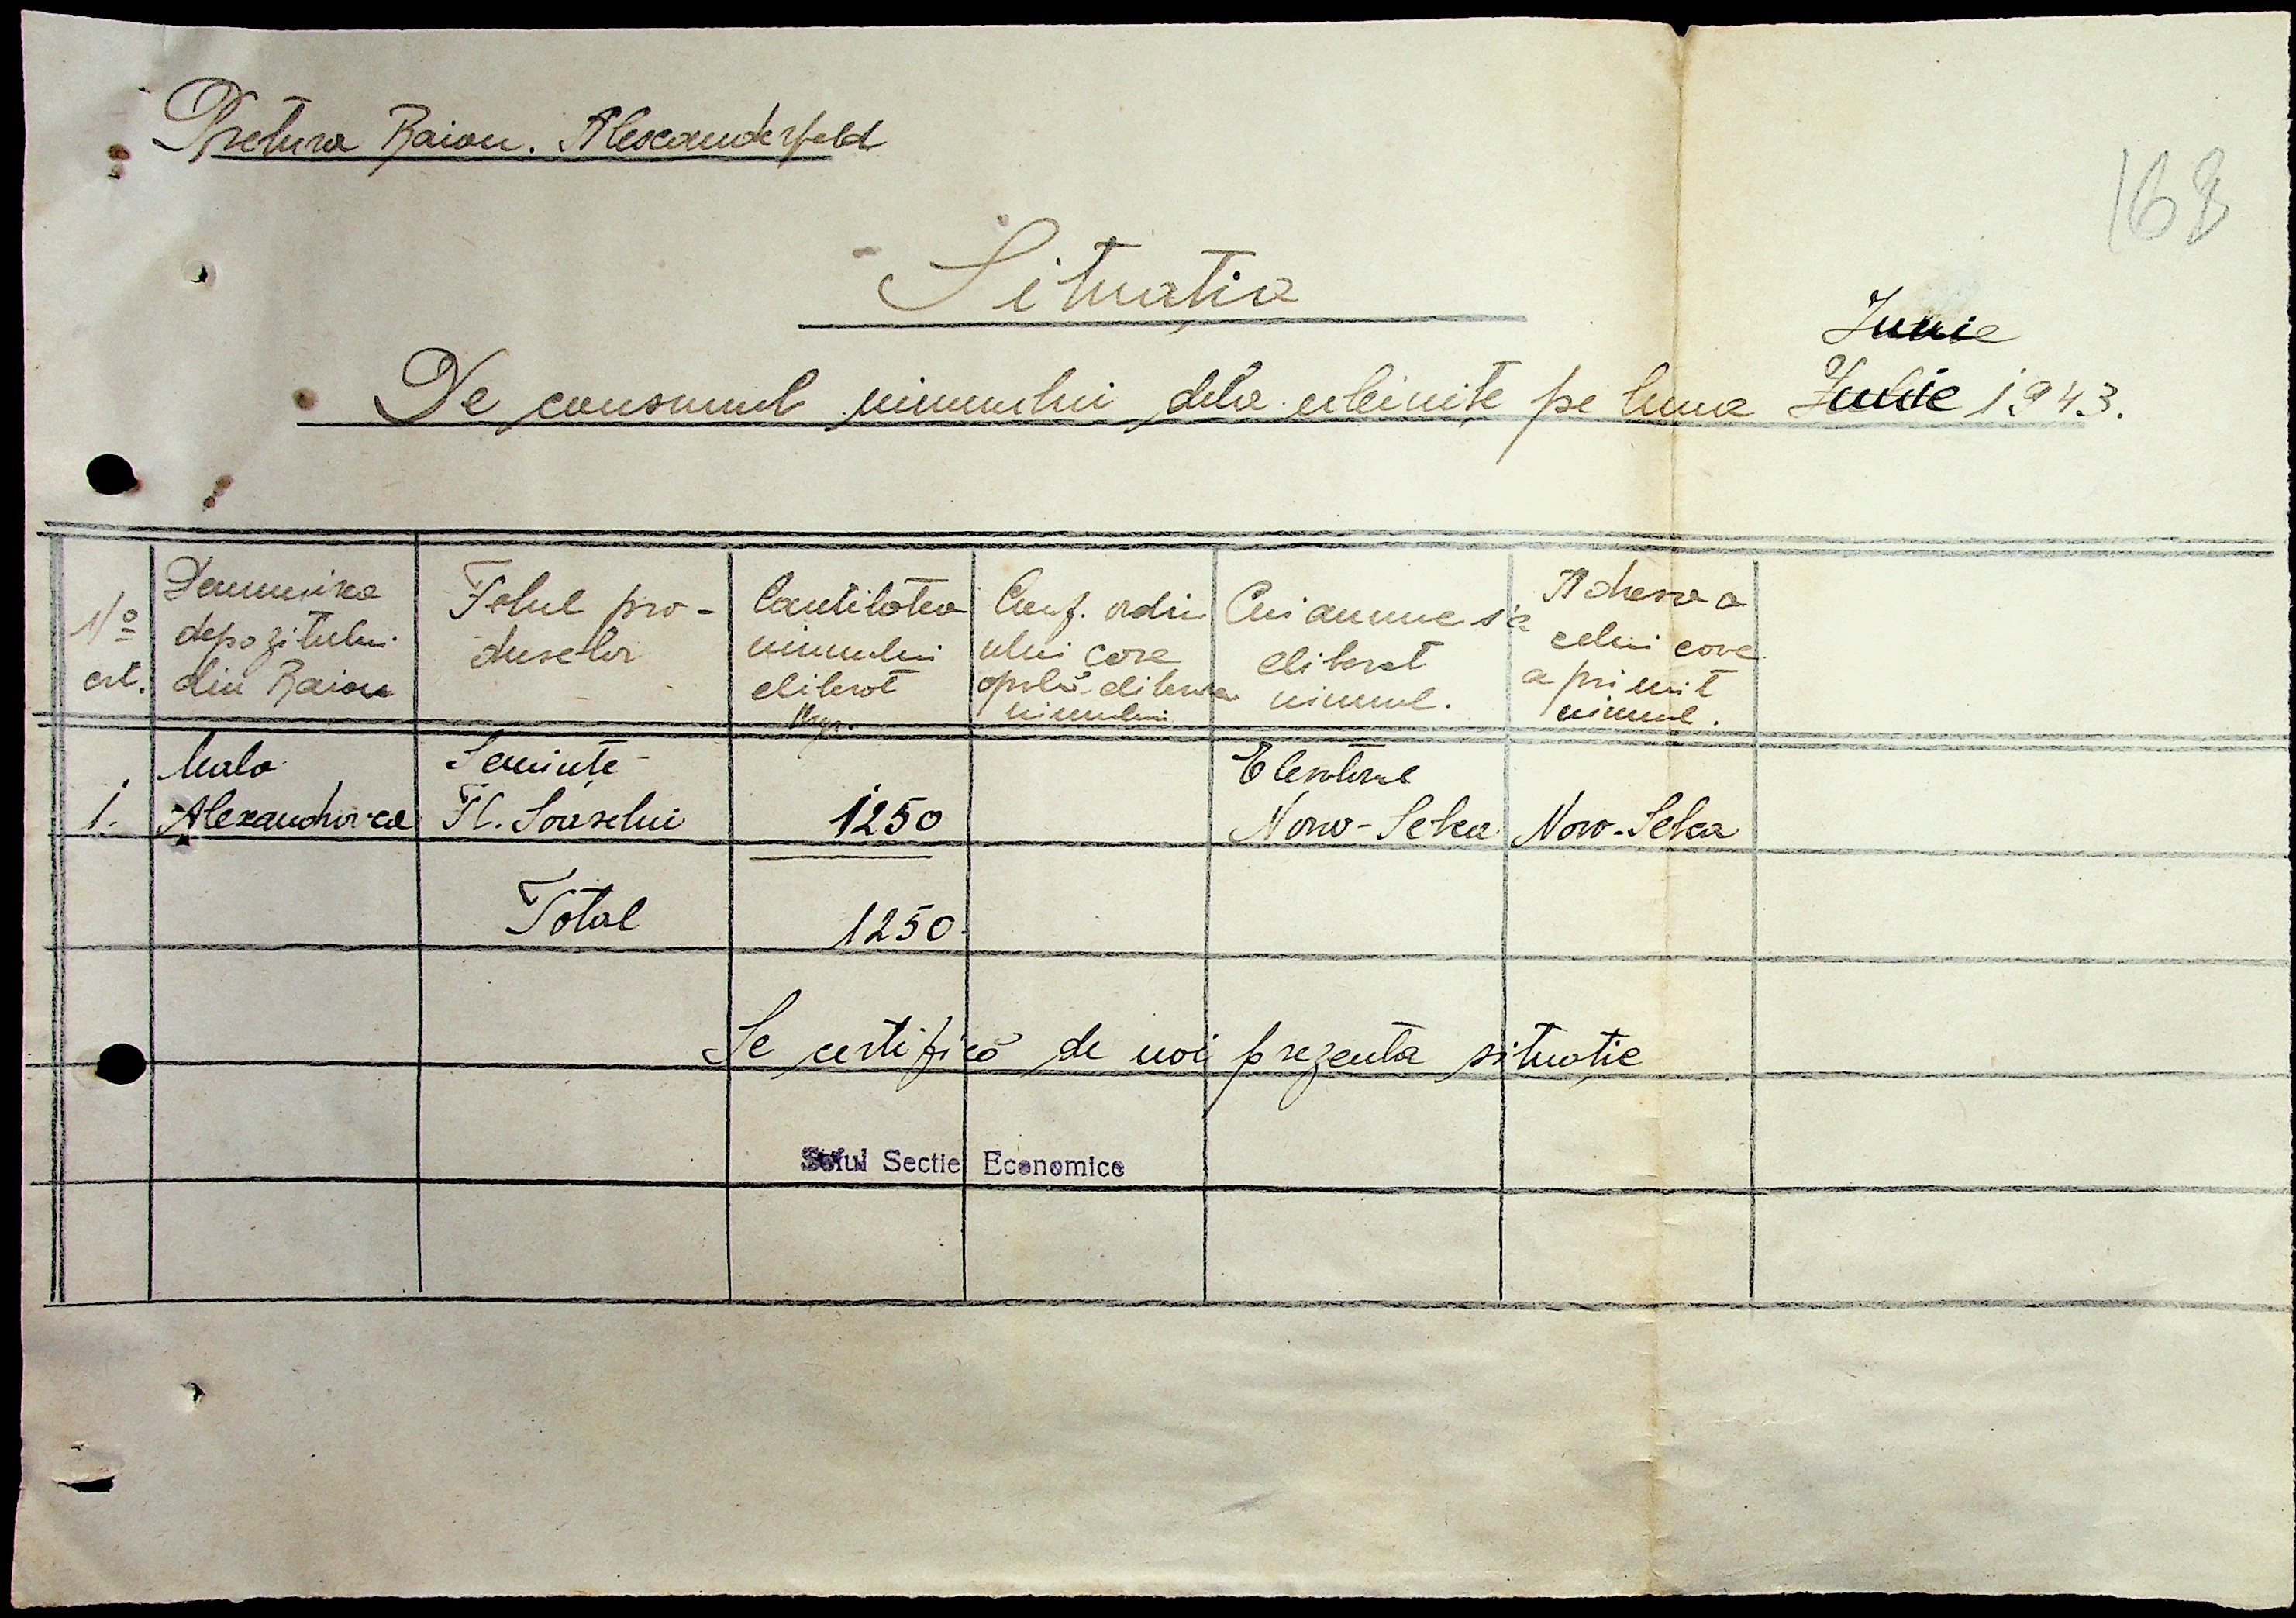 Pretura Raion. Alexanderfeld
168
Situația
Junie
De consumul nimurului dela uleinițe pe luna Julie 1943.
No crt.
Denumirea depozitului din Raion
Felul pro-duselor
Cantitatea eliberat Kgr.
Conf. ordinului care
Cui anume s'a eliberat
Adresa a celui care a primit
1. Mala Alexandrovca
Seminte Fl. Soarelui
1250
Elevatorul Nowo-Selca
Nowo-Selca
Total 1250
Se certifică de noi prezenta situație
Seful Sectiei Economice